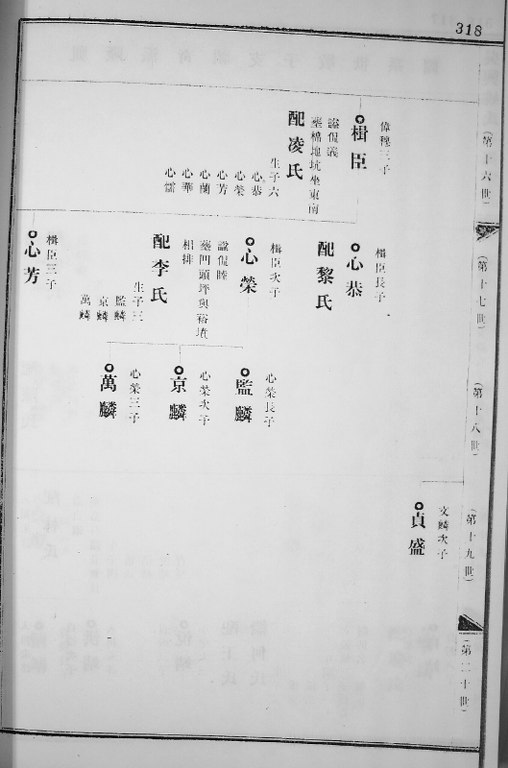 318
(第十六世)
偉穆三子
楫臣
諡侃義
葬棉地坑坐東南
配凌氏
生子六
心恭
心榮
心芳
心蘭
心華
心儒
(第十七世)
楫臣長子
心恭
配黎氏
楫臣次子
心榮
諡侃睦
相排
配李氏
生子三
監麟
京麟
萬麟
楫臣三子
心芳
(第十八世)
心榮長子
監麟
心榮次子
京麟
心榮三子
萬麟
(第十九世)
文麟次子
貞盛
(第二十世)